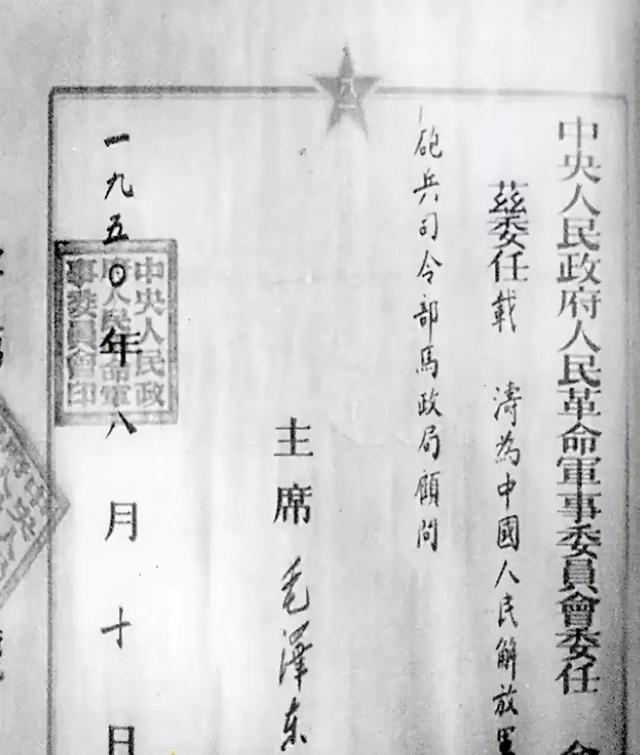 八一
中央人民政府人民革命軍事委員會委任
茲委任載濤為中國人民解放軍
砲兵司令部馬政局顧問
主席毛澤东
一九五〇年八月十日
中央人民政
府人民革命軍
事委員會印